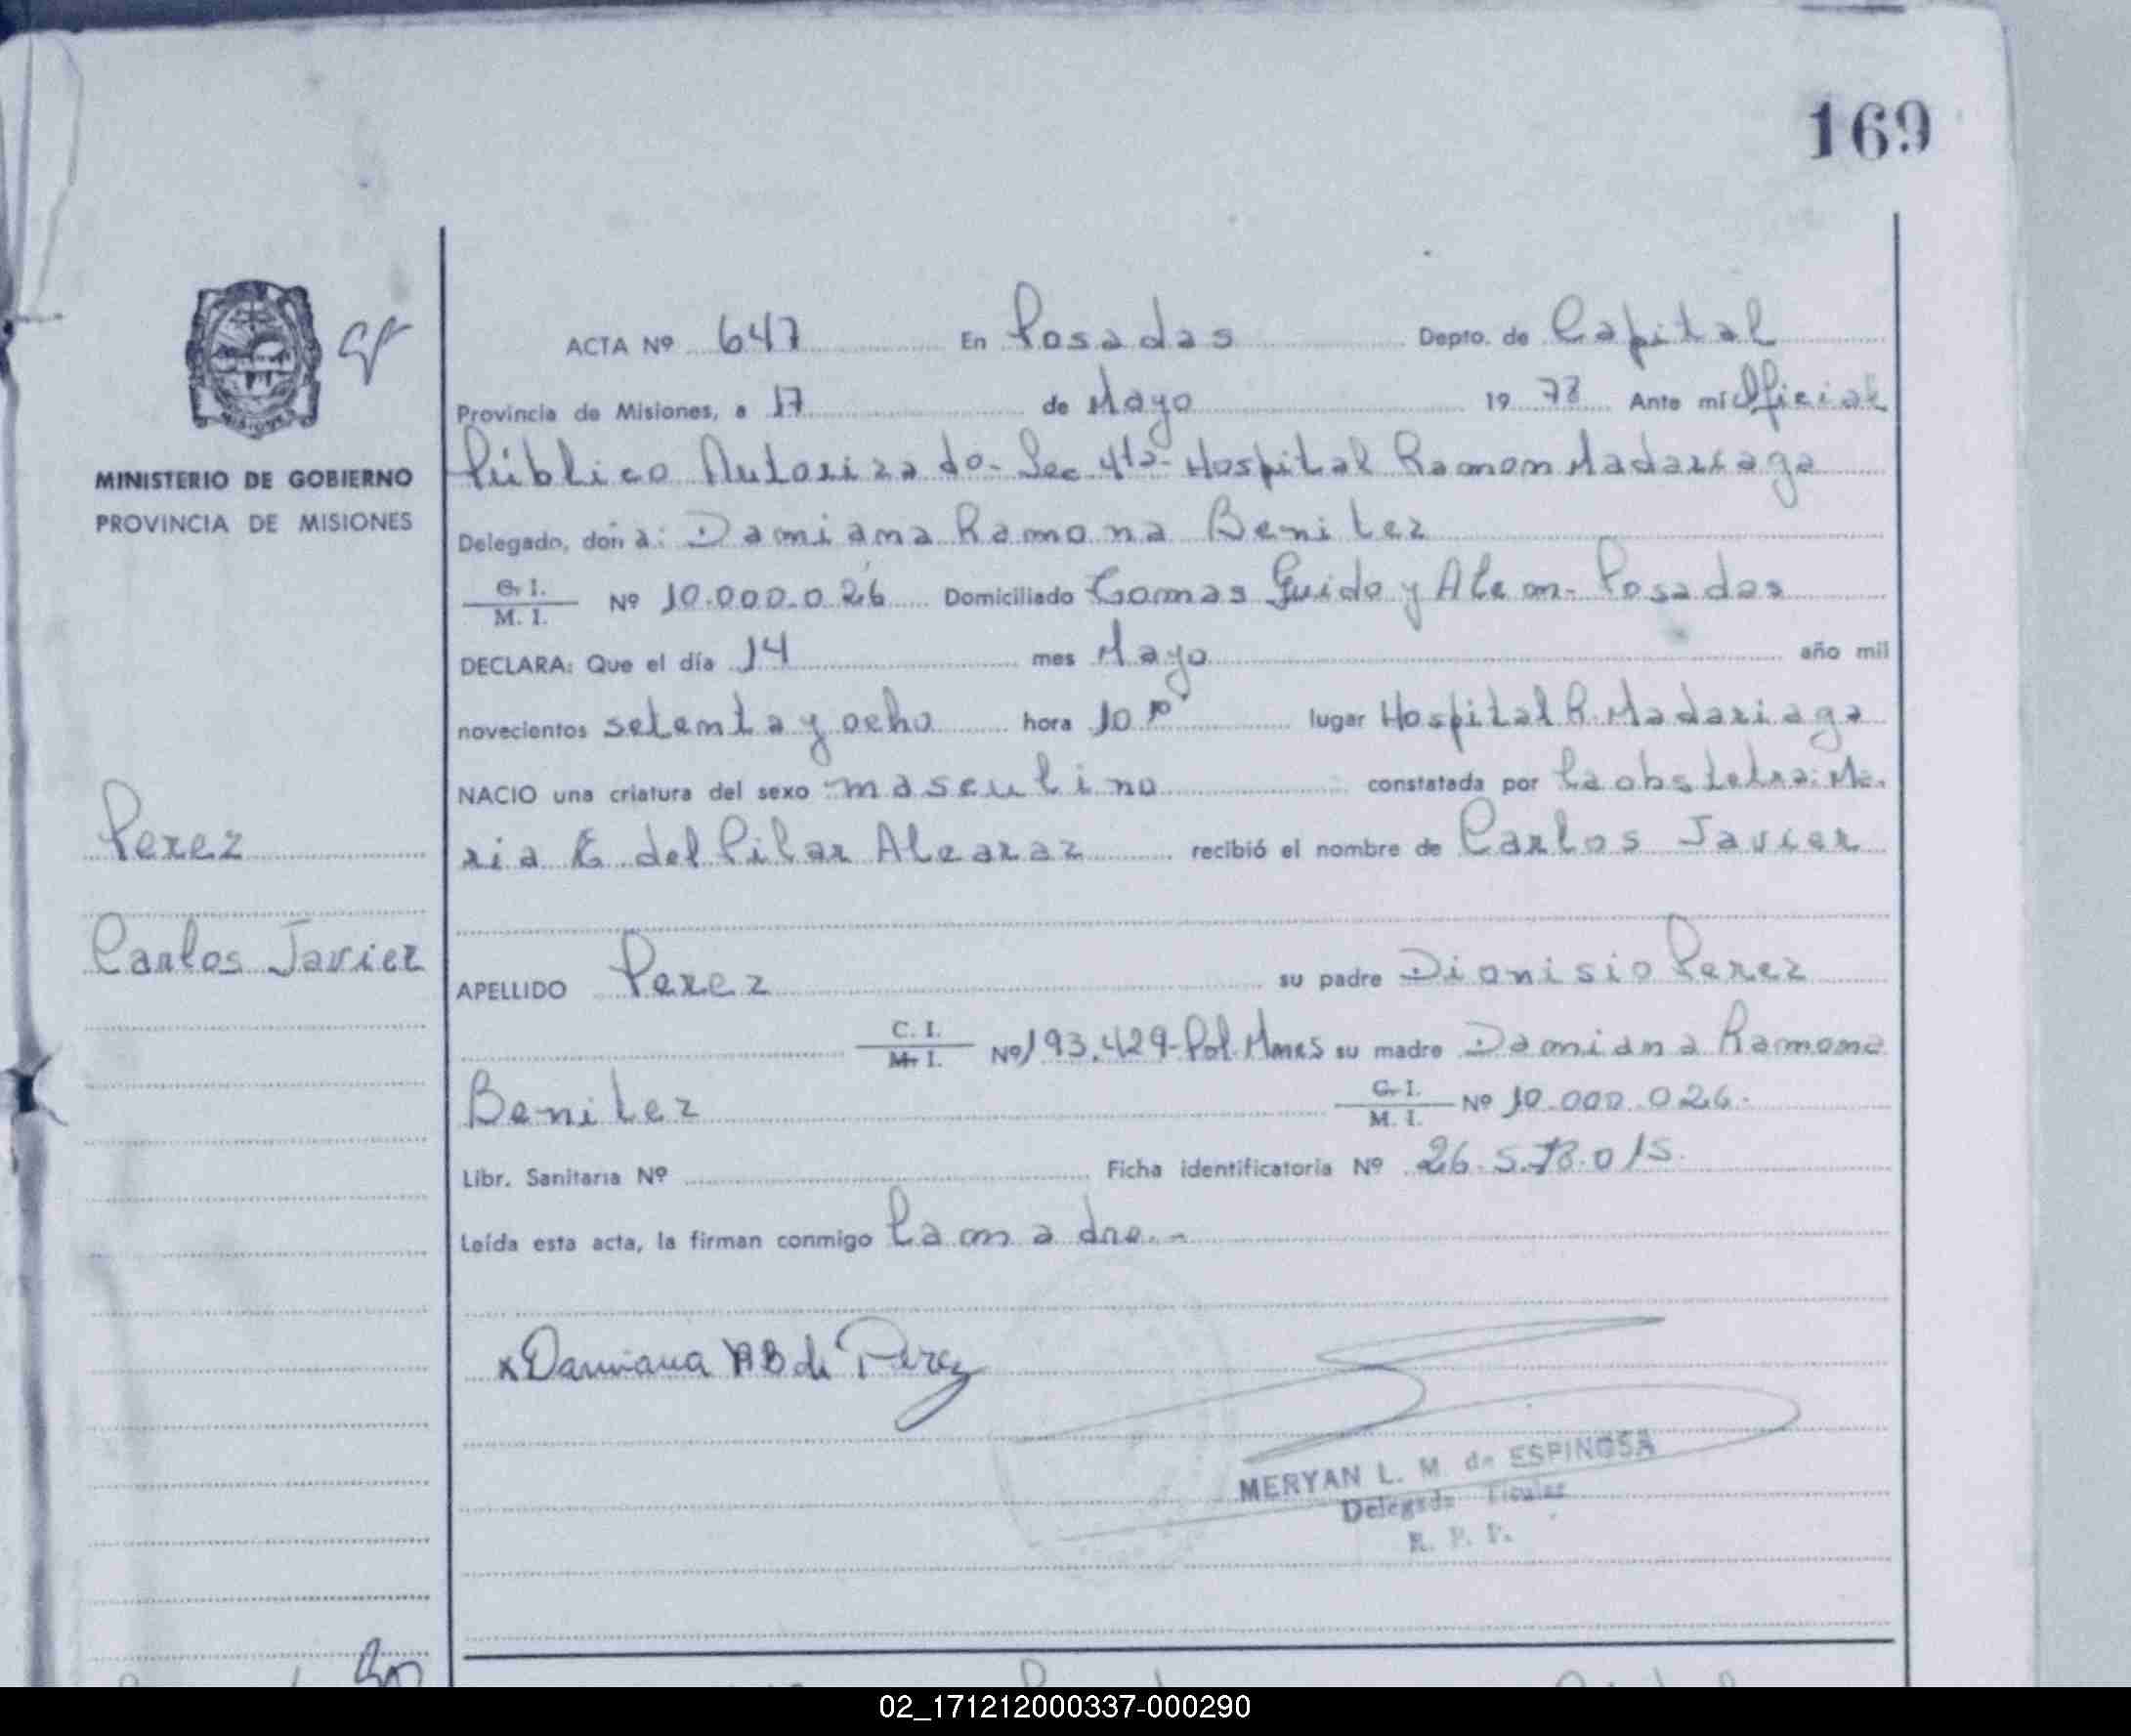 169
ACTA Nº 647 En Posadas Depto. de Capital
Provincia de Misiones, a 17 de Mayo 19 78 Ante mi Oficial
Público Autorizado - Sec 4ta - Hospital Ramon Madariaga
MINISTERIO DE GOBIERNO
PROVINCIA DE MISIONES
Delegado, don a: Damiana Ramona Benitez
C. I.
M. I. Nº 10.000.026 Domiciliado Tomas Guido y Alem - Posadas
DECLARA: Que el día 14 mes Mayo año mil
novecientos setenta y ocho hora 10 10 lugar Hospital R. Madariaga
NACIO una criatura del sexo masculino constatada por la obstetra: Ma-
ria E. del Pilar Alcaraz recibió el nombre de Carlos Javier
Perez
Carlos Javier
APELLIDO Perez su padre Dionisio Perez
C. I.
M. I. Nº 193.429 - Pol. Mnes su madre Damiana Ramona
Benitez C. I.
M. I. Nº 10.000.026.
Libr. Sanitaria Nº Ficha identificatoria Nº 26.5.78.015.
Leída esta acta, la firman conmigo la madre. -
x Damiana R B de Perez
MERYAN L. M. de ESPINOSA
Delegada Titular
R. P. P.
02_171212000337-000290